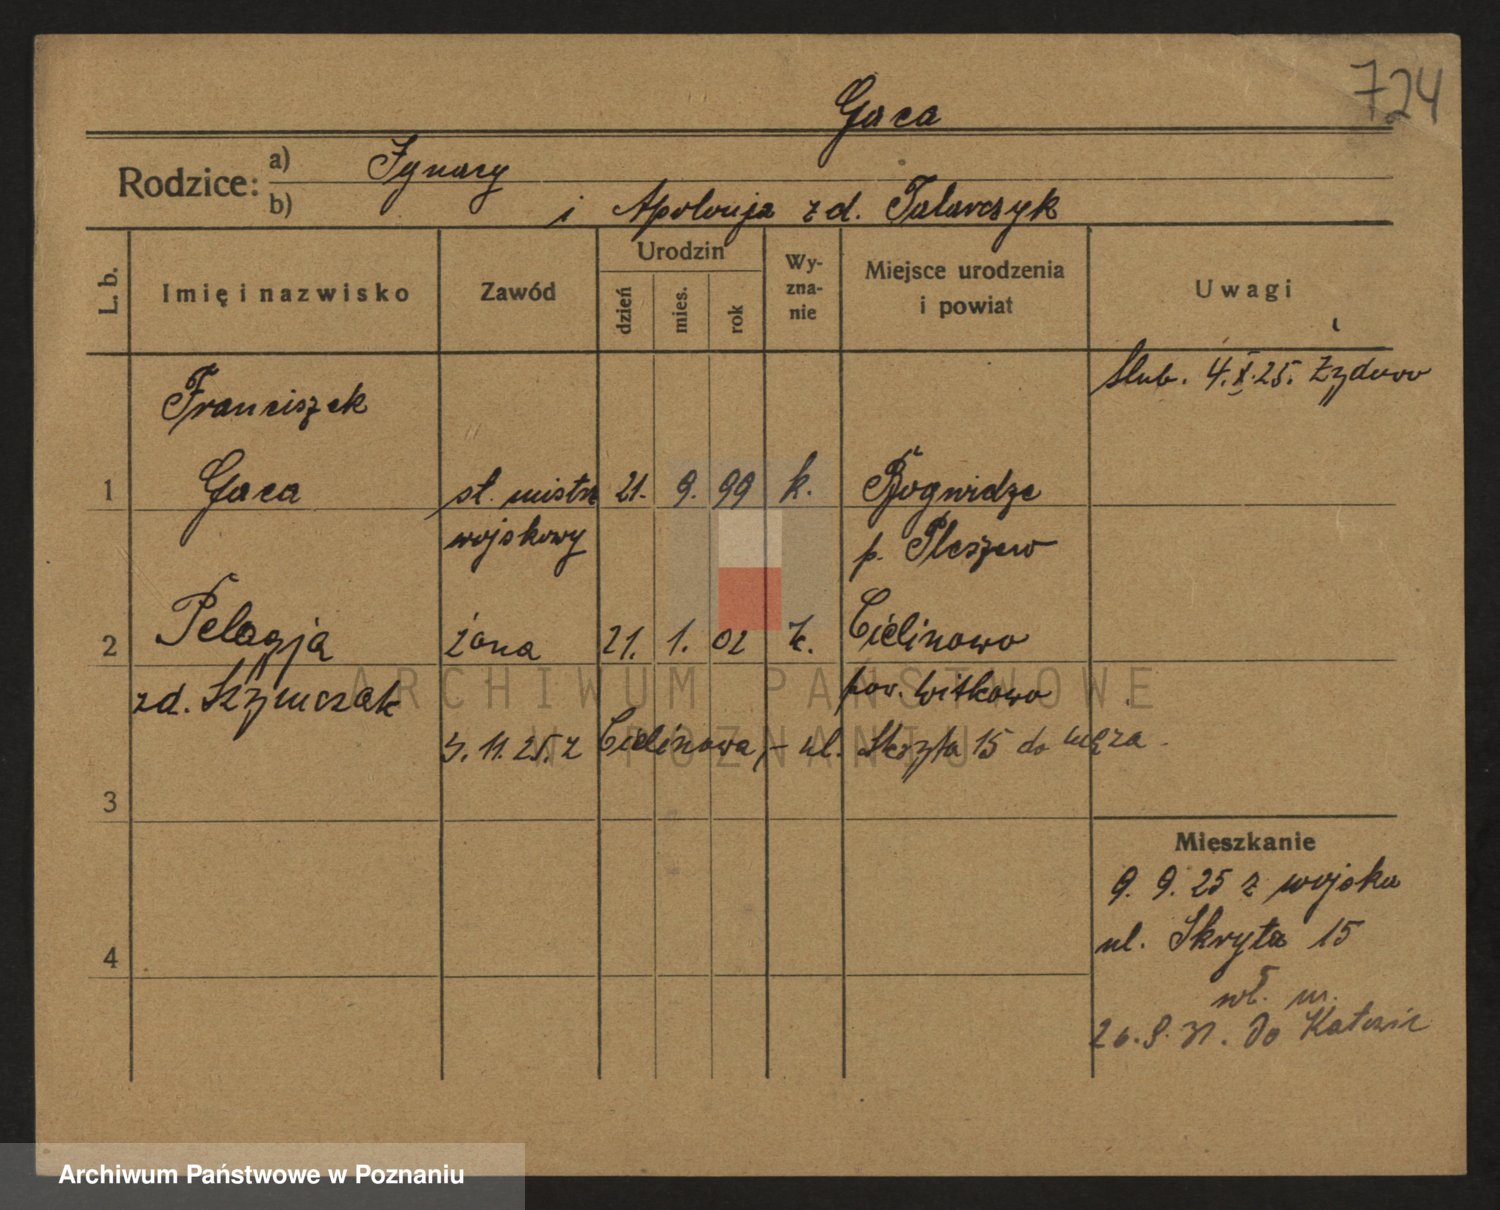 724
Gaca
Rodzice:
a) Ignacy
b) i Apolonja zd. Tatarczyk
L. b.
Imię i nazwisko
Zawód
Urodzin
dzień
mies.
rok
Wy-
zna-
nie
Miejsce urodzenia
i powiat
Uwagi
ślub. 4.X.25. Żydowo
Franciszek
1 Gaca st. mistrz 21. 9. 99 k. Bogwidze
wojskowy p. Pleszew
2 Pelagja żona 21. 1. 02 k. Cielinowo
zd. Szymczak pow. Witkowo
5. 11. 25. z Cielinowa, - ul. Skryta 15 do męża
3
Mieszkanie
9. 9. 25 z wojska
ul. Skryta 15
4
wł. m.
do Katowic
ARCHIWUM PAŃSTWOWE
W POZNANIU
Archiwum Państwowe w Poznaniu